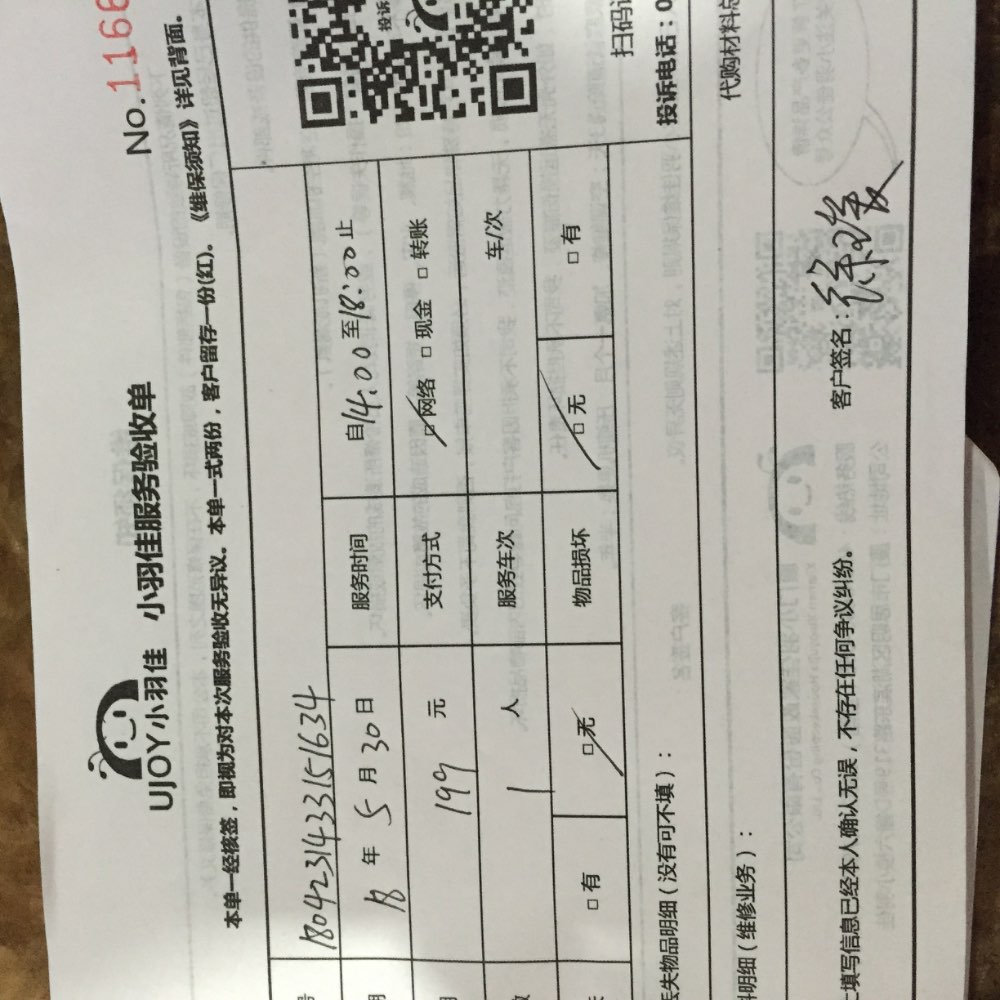 No.1166
UJOY小羽佳 小羽佳服务验收单
本单一经核签，即视为对本次服务验收无异议。本单一式两份，客户留存一份(红)。《维保须知》详见背面。
号 1804231433151634
18 年 5 月 30 日 服务时间 自14:00至18:00止
199 元 支付方式 ☑网络 □现金 □转账
数 1 人 服务车次 车/次
□有 ☑无 物品损坏 ☑无 □有
投诉
扫码
投诉电话：0
丢失物品明细（没有可不填）：
代购材料总
料明细（维修业务）：
填写信息已经本人确认无误，不存在任何争议纠纷。 客户签名：徐